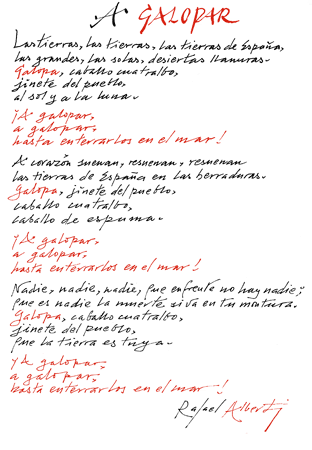 A GALOPAR
Las tierras, las tierras, las tierras de España,
las grandes, las solas, desiertas llanuras.
Galopa, caballo cuatralbo,
jinete del pueblo,
al sol y a la luna.
¡A galopar,
a galopar,
hasta enterrarlos en el mar!
A corazón suenan, resuenan, resuenan
las tierras de España en las herraduras.
Galopa, jinete del pueblo,
caballo cuatralbo,
caballo de espuma.
¡A galopar,
a galopar,
hasta enterrarlos en el mar!
Nadie, nadie, nadie, que enfrente no hay nadie;
que es nadie la muerte si va en tu montura.
Galopa, caballo cuatralbo,
jinete del pueblo,
que la tierra es tuya.
¡A galopar,
a galopar,
hasta enterrarlos en el mar!
Rafael Alberti